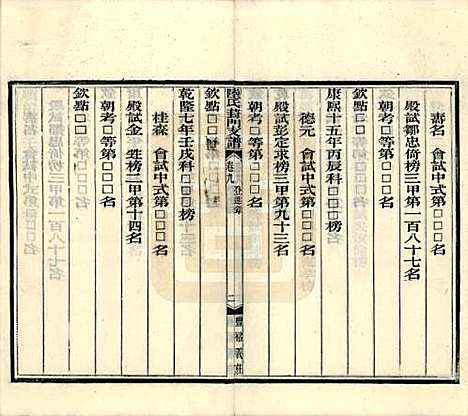 壽名　會試中式第□□□名
殿試鄒忠倚榜三甲第一百八十七名
朝考□等第□□□名
欽點□□
康熙十五年丙辰科□□榜
德元　會試中式第□□□名
殿試彭定求榜三甲第九十三名
朝考□等第□□□名
欽點□□
陸氏葑門支譜　卷九　登進考　二　豐裕義莊
乾隆七年壬戌科□□榜
桂森　會試中式第□□□名
殿試金　甡榜三甲第十四名
朝考□等第□□□名
欽點□□